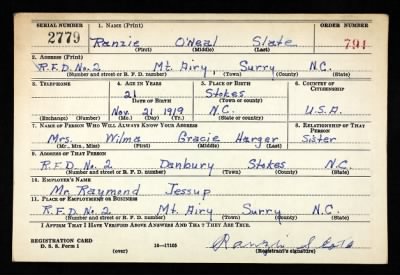 SERIAL NUMBER 1. NAME (Print) ORDER NUMBER
2779 Ranzie O'Neal Slate 791
(First) (Middle) (Last)
2. ADDRESS (Print)
R.F.D. No. 2 Mt. Airy, Surry N.C.
(Number and street or R. F. D. number) (Town) (County) (State)
3. TELEPHONE 4. AGE IN YEARS 5. PLACE OF BIRTH 6. COUNTRY OF CITIZENSHIP
21 Stokes
DATE OF BIRTH (Town or county)
Nov. 21 1919 N.C. U.S.A.
(Exchange) (Number) (Mo.) (Day) (Yr.) (State or country)
7. NAME OF PERSON WHO WILL ALWAYS KNOW YOUR ADDRESS 8. RELATIONSHIP OF THAT PERSON
Mrs. Wilma Gracie Harger Sister
(Mr., Mrs., Miss) (First) (Middle) (Last)
9. ADDRESS OF THAT PERSON
R.F.D. No. 2 Danbury Stokes N.C.
(Number and street or R. F. D. number) (Town) (County) (State)
10. EMPLOYER'S NAME
Mr. Raymond Jessup
11. PLACE OF EMPLOYMENT OR BUSINESS
R.F.D. No. 2 Mt. Airy Surry N.C.
(Number and street or R. F. D. number) (Town) (County) (State)
I AFFIRM THAT I HAVE VERIFIED ABOVE ANSWERS AND THAT THEY ARE TRUE.
REGISTRATION CARD
D. S. S. Form 1 (over) 16—17105 (Registrant's signature)